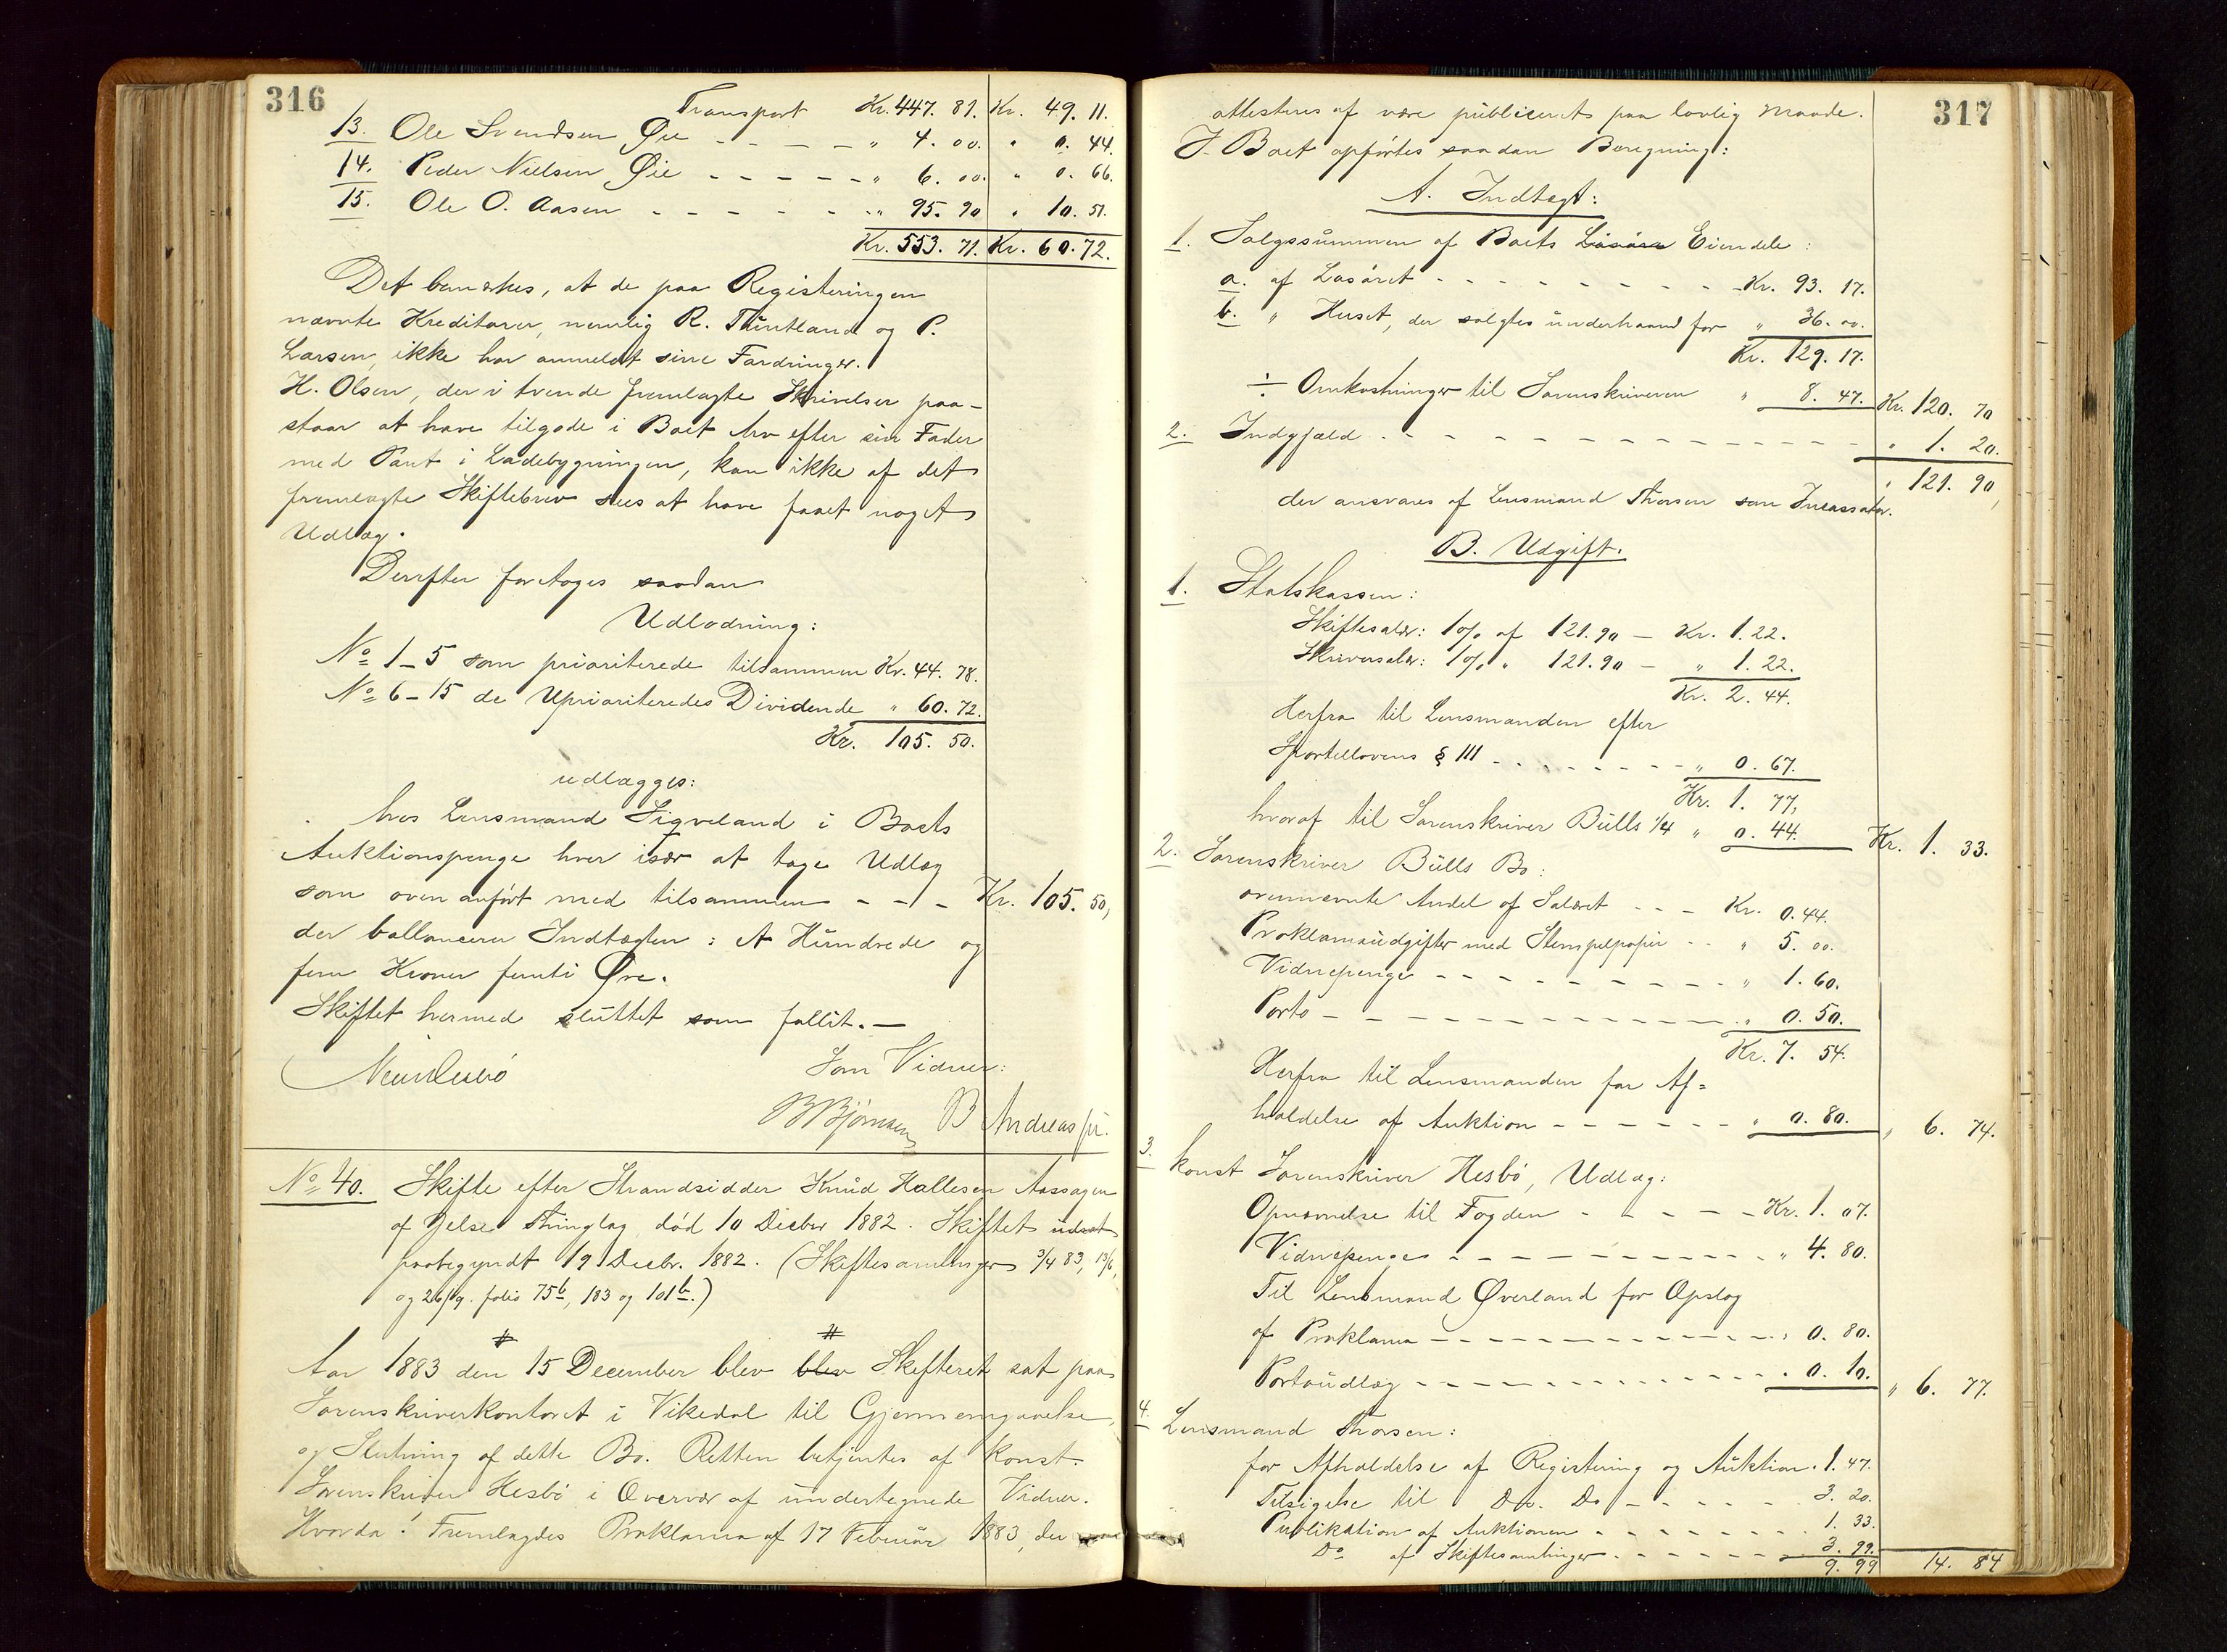 316
Transport Kr. 447. 81. Kr. 49. 11.
13. Ole Svendsen Øie - - - - " 4. 00. " 0. 44.
14. Peder Nielsen Øie - - - - - " 6. 00. " 0. 66.
15. Ole O. Aasen - - - - - " 95. 90 " 10. 51.
Kr. 553. 71. Kr. 60. 72.
Det bemærkes, at de paa Registeringen
nævnte Kreditorer, nemlig R. Tuntland og P.
Larsen, ikke har anmeldt sine Fordringer.
H. Olsen, der i tvende fremlagte Skrivelser paa-
staar at have tilgode i Boet Arv efter sin Fader
med Pant i Ladebygningen, kan ikke af det
fremlagte Skiftebrev sees at have faaet noget
Udlæg.
Derefter foretoges saadan
Udlodning:
No 1-5 som prioriterede tilsammen Kr. 44. 78.
No 6-15 de Uprioriteredes Dividende " 60. 72.
Kr. 105. 50.
udlægges:
hos Lensmand Sigveland i Boets
Auktionspenge hver især at tage Udlæg
som oven anført med tilsammen - - - Kr. 105. 50,
der ballancerer Indtægten: Et Hundrede og
fem Kroner femti Øre.
Skiftet hermed sluttet som fallit. —
Som Vidner:
B Bjørnsen B Andreassen
No 40. Skifte efter Strandsidder Knud Hallesen Aasagen
af Jelse Thinglag, død 10 Decbr 1882. Skiftet udsat
paabegyndt 19 Decbr. 1882. (Skiftesamlinger 3/4 83, 13/6,
og 26/9. folio 75b, 183 og 101b.)
Aar 1883 den 15 December blev blev Skifteret sat paa
Sorenskriverkontoret i Vikedal til Gjennemgaaelse
og Slutning af dette Bo. Retten betjentes af konst.
Sorenskriver Hesbö i Overvær af undertegnede Vidner.
Hvorda! Fremlagdes Proklama af 17 Februar 1883, der
317
attesteres at være publiceret paa lovlig Maade.
I Boet opførtes saadan Beregning:
A. Indtægt:
1. Salgssummen af Boets Løsøre Eiendele:
a. af Løsøret - - - - - - - - - Kr. 93. 17.
b. " Huset, der solgtes underhaand for " 36. 00.
Kr. 129. 17.
÷ Omkostninger til Sorenskriveren " 8. 47. Kr. 120. 70
2. Indgjæld - - - - - - - - - - - - - " 1. 20.
" 121. 90,
der ansvares af Lensmand Thorsen som Incassator.
B. Udgift.
1. Statskassen:
Skiftesalær: 1 % af 121.90 — Kr. 1. 22.
Skriversalær: 1 % " 121.90 — " 1. 22.
Kr. 2. 44.
Herfra til Lensmanden efter
Sportellovens § 111 - - - - - - - - " 0. 67.
Kr. 1. 77,
hvoraf til Sorenskriver Bülls 1/4 " 0. 44. Kr. 1. 33.
2. Sorenskriver Bülls Bo:
ovennævnte Andel af Salæret - - - Kr. 0. 44.
Proklamaudgifter med Stempelpapir - - " 5. 00.
Vidnepenge - - - - - - - - - " 1. 60.
Porto - - - - - - - - - - - - " 0. 50.
Kr. 7. 54.
Herfra til Lensmanden for Af=
holdelse af Auktion - - - - - - " 0. 80. " 6. 74.
3. konst Sorenskriver Hesbö, Udlæg:
Opnævnelse til Fogden - - - - - Kr. 1. 07.
Vidnepenge - - - - - - - - - - " 4. 80.
Til Lensmand Øverland for Opslag
af Proklama - - - - - - - - - - " 0. 80.
Portoudlæg - - - - - - - - - - - " 0. 10. " 6. 77.
4. Lensmand Thorsen:
for Afholdelse af Registering og Auktion. 1. 47.
Tilsigelse til Do. Do - - - - - 3. 20.
Publikation af Auktionen - - - - - - - 1. 33.
Do af Skiftesamlinger - - - - - - 3. 99.
9. 99 14. 84